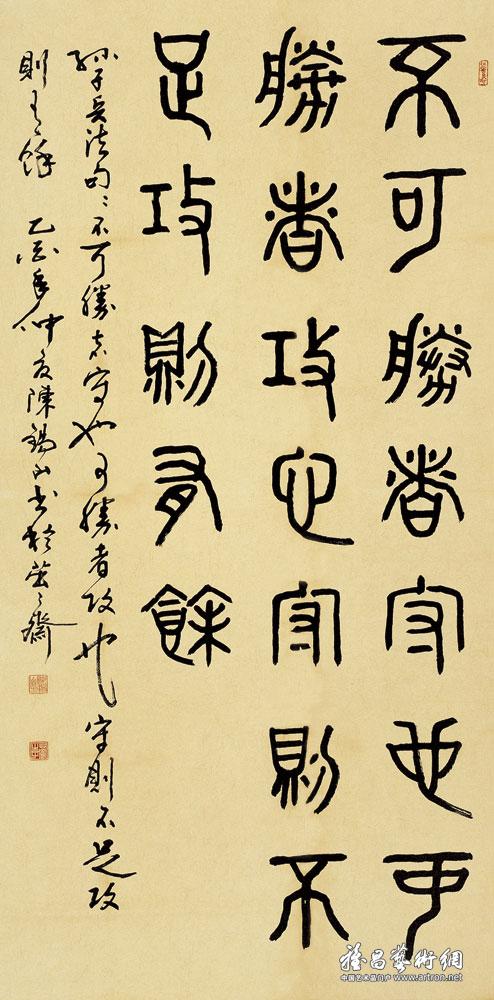 不可勝者守也可
勝者攻也守則不
足攻則有餘
孫子兵法句：不可勝者守也可勝者攻也守則不足攻
則有餘 乙酉年仲夏陳錫山書於莹莹齋
雅昌藝術網
中国艺术品门户 www.artron.net